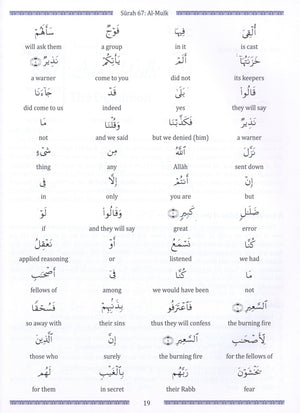 Sūrah 67: Al-Mulk
أُلْقِىَ فِيهَا فَوْجٌ سَأَلَهُمْ
is cast in it a group will ask them
خَزَنَتُهَآ أَلَمْ يَأْتِكُمْ نَذِيرٌ ٨
its keepers did not come to you a warner
قَالُوا۟ بَلَىٰ قَدْ جَآءَنَا
they will say yes indeed did come to us
نَذِيرٌ فَكَذَّبْنَا وَقُلْنَا مَا
a warner but we denied (him) and we said not
نَزَّلَ ٱللَّهُ مِن شَىْءٍ
sent down Allāh any thing
إِنْ أَنتُمْ إِلَّا فِى
are you but only in
ضَلَٰلٍ كَبِيرٍ ٩ وَقَالُوا۟ لَوْ
error great and they will say if
كُنَّا نَسْمَعُ أَوْ نَعْقِلُ
we had listened or applied reasoning
مَا كُنَّا فِىٓ أَصْحَٰبِ
not we would have been among fellows of
ٱلسَّعِيرِ ١٠ فَٱعْتَرَفُوا۟ بِذَنۢبِهِمْ فَسُحْقًا
the burning fire thus they will confess their sins so away with
لِّأَصْحَٰبِ ٱلسَّعِيرِ ١١ إِنَّ ٱلَّذِينَ
for the fellows of the burning fire surely those who
يَخْشَوْنَ رَبَّهُم بِٱلْغَيْبِ لَهُم
fear their Rabb in secret for them
19